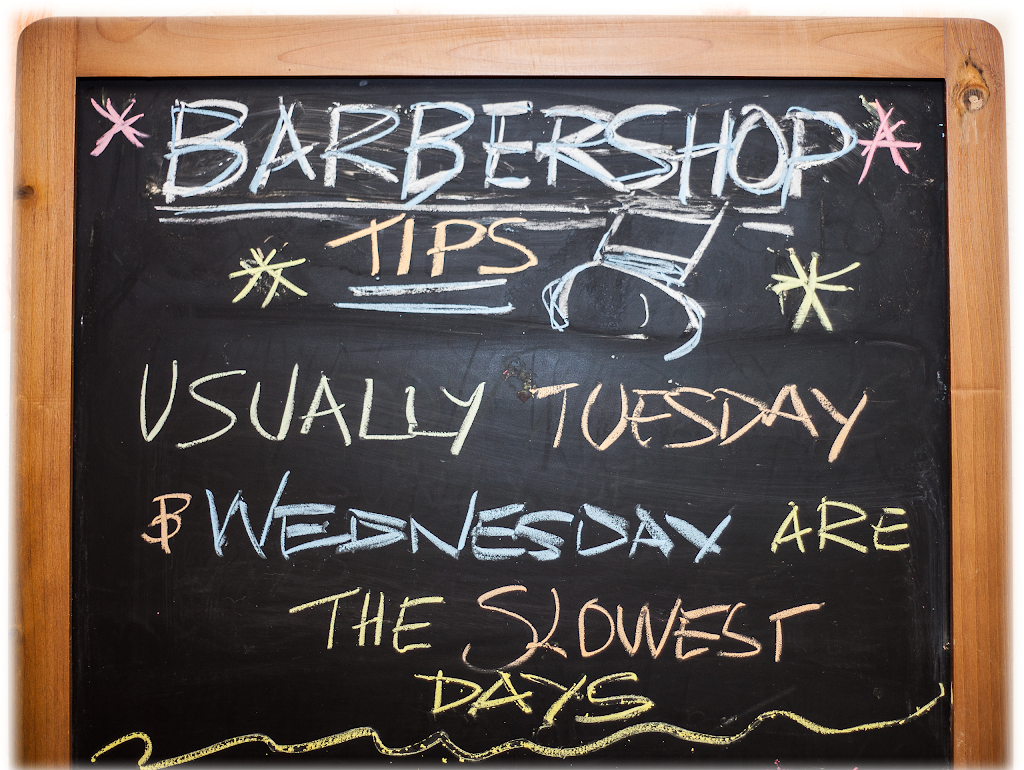 BARBERSHOP
TIPS
USUALLY TUESDAY
& WEDNESDAY ARE
THE SLOWEST
DAYS